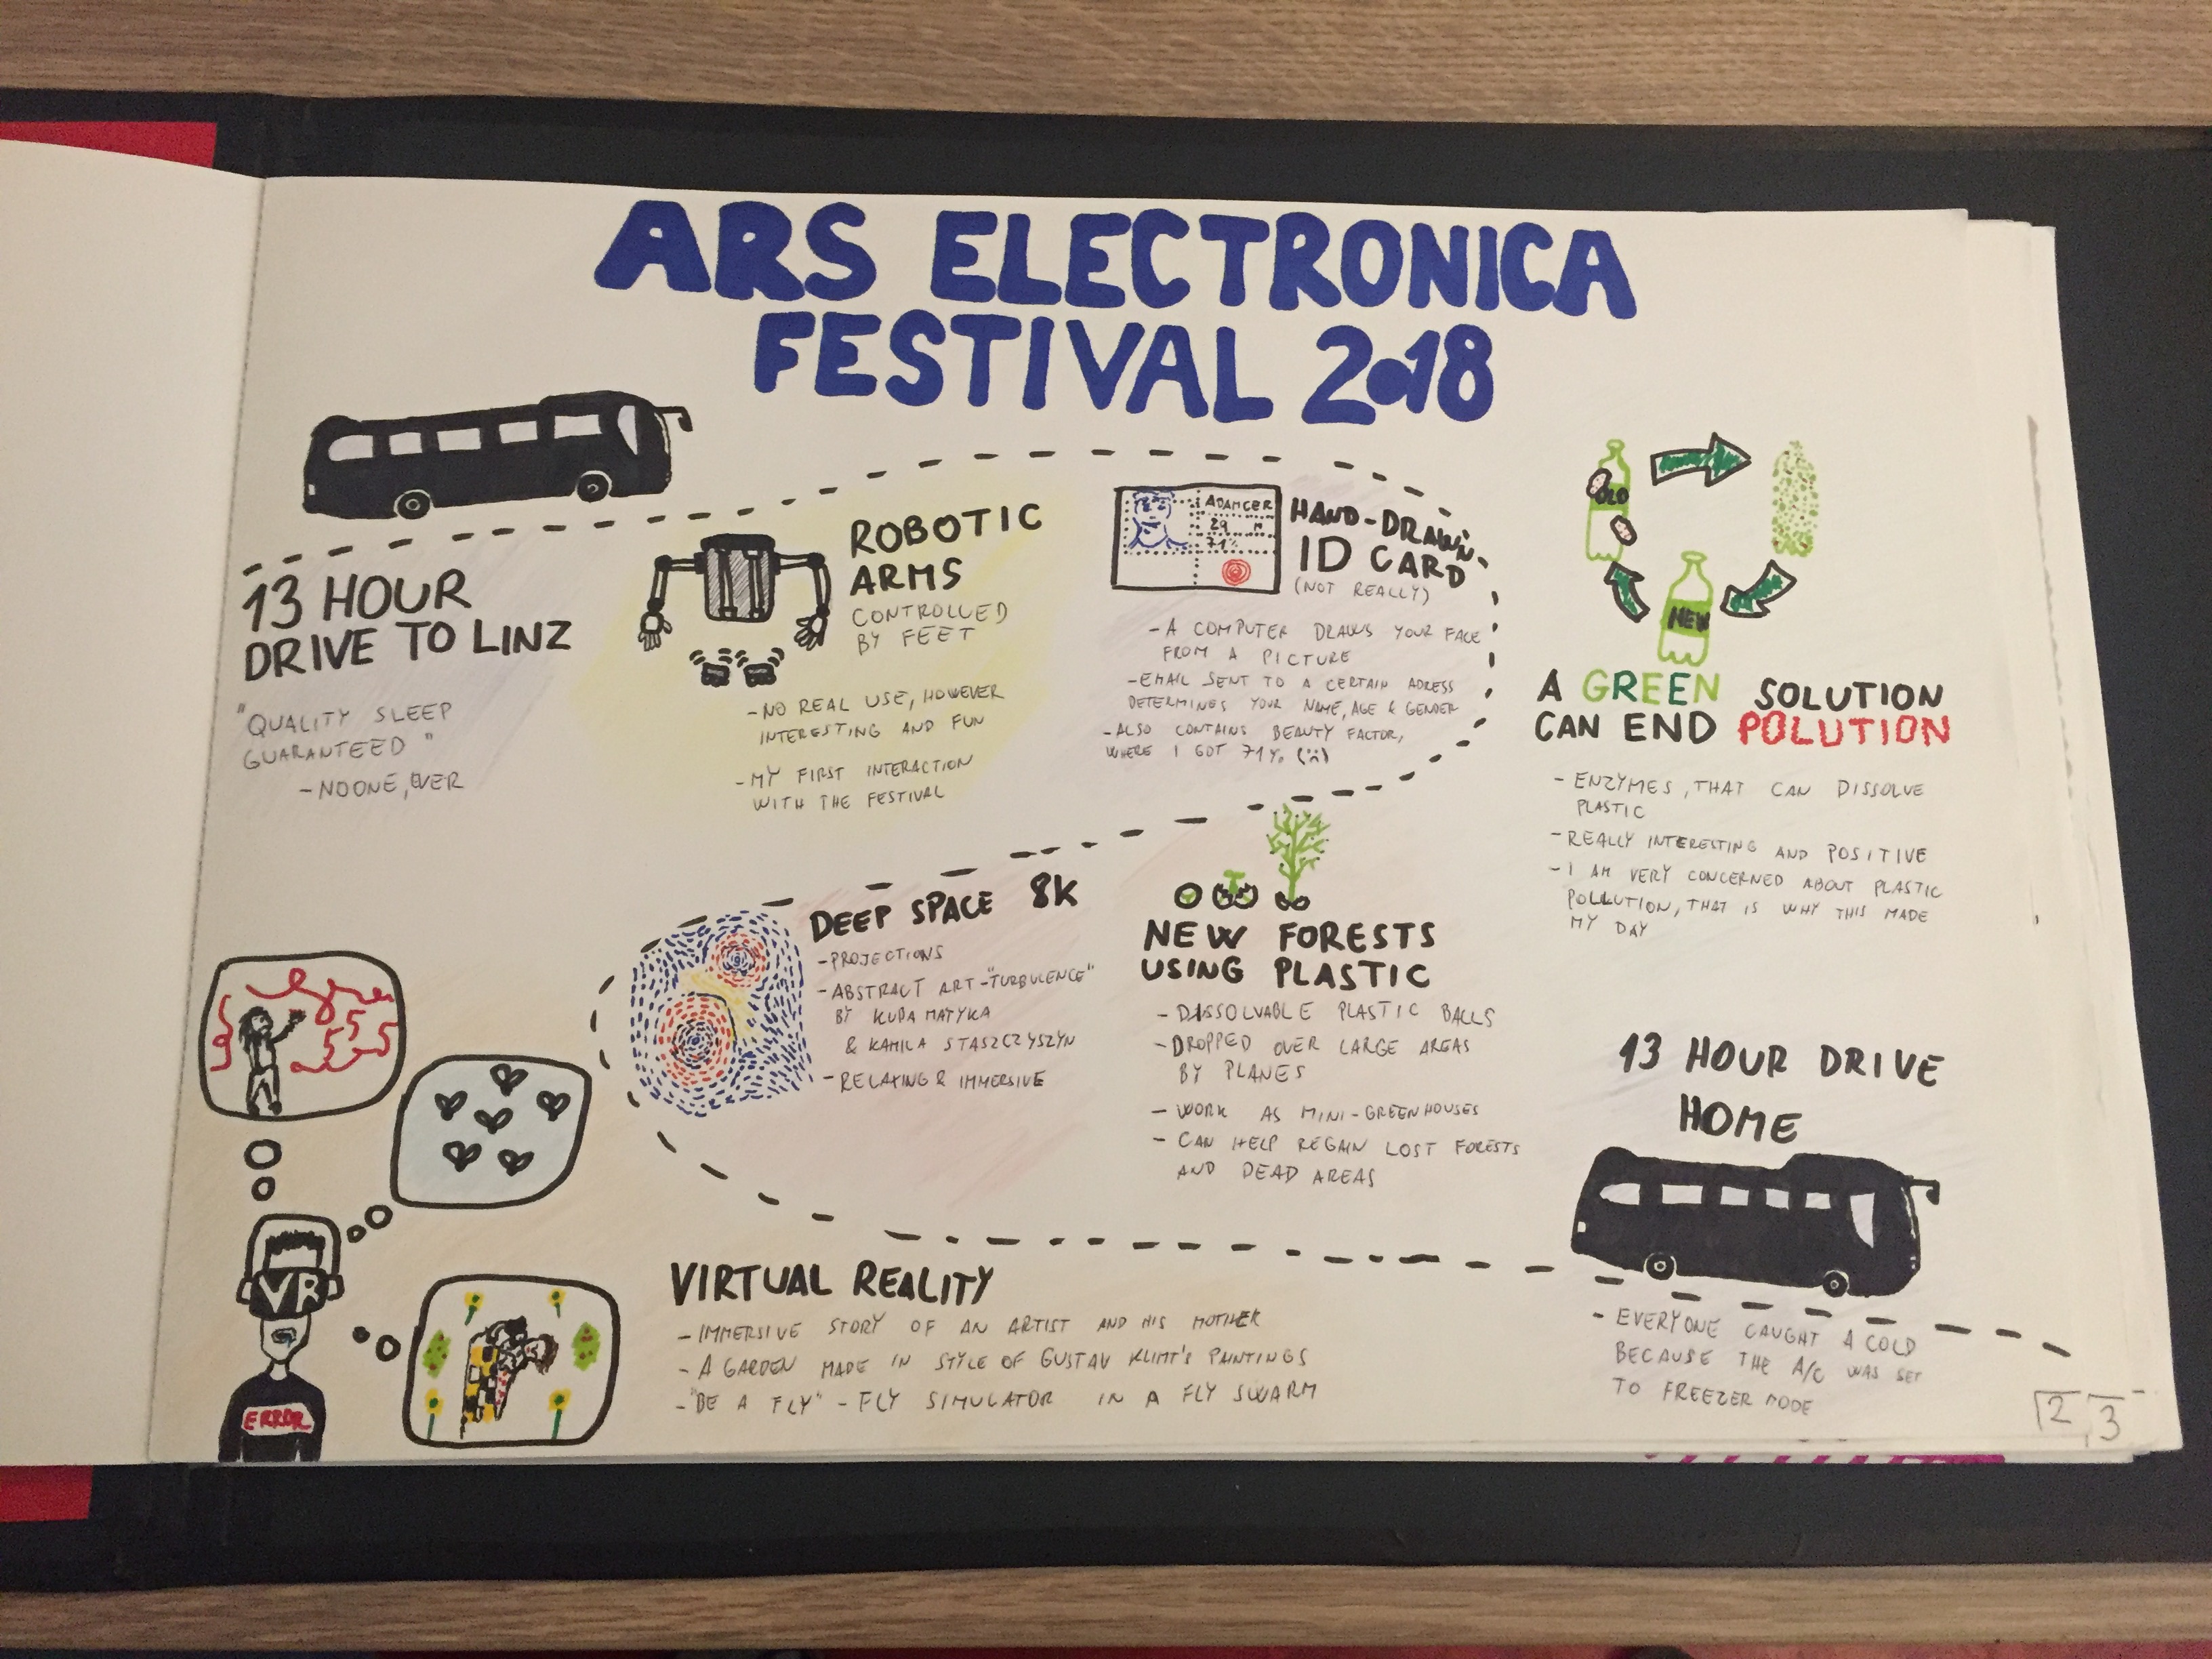 ARS ELECTRONICA
FESTIVAL 2018
13 HOUR
DRIVE TO LINZ
"QUALITY SLEEP
GUARANTEED"
- NOONE, EVER
ROBOTIC
ARMS
CONTROLLED
BY FEET
- NO REAL USE, HOWEVER
INTERESTING AND FUN
- MY FIRST INTERACTION
WITH THE FESTIVAL
ADAMCER
29 M
71%
HAND-DRAWN
ID CARD
(NOT REALLY)
- A COMPUTER DRAWS YOUR FACE
FROM A PICTURE
- EMAIL SENT TO A CERTAIN ADRESS
DETERMINES YOUR NAME, AGE & GENDER
- ALSO CONTAINS BEAUTY FACTOR,
WHERE I GOT 71%
OLD
NEW
A GREEN SOLUTION
CAN END POLUTION
- ENZYMES, THAT CAN DISSOLVE
PLASTIC
- REALLY INTERESTING AND POSITIVE
- I AM VERY CONCERNED ABOUT PLASTIC
POLLUTION, THAT IS WHY THIS MADE
MY DAY
DEEP SPACE 8K
- PROJECTIONS
- ABSTRACT ART - "TURBULENCE"
BY KUBA MATYKA
& KAMILA STASZCZYSZYN
- RELAXING & IMMERSIVE
NEW FORESTS
USING PLASTIC
- DISSOLVABLE PLASTIC BALLS
- DROPPED OVER LARGE AREAS
BY PLANES
- WORK AS MINI-GREENHOUSES
- CAN HELP REGAIN LOST FORESTS
AND DEAD AREAS
VR
ERROR
VIRTUAL REALITY
- IMMERSIVE STORY OF AN ARTIST AND HIS MOTHER
- A GARDEN MADE IN STYLE OF GUSTAV KLIMT'S PAINTINGS
- "BE A FLY" - FLY SIMULATOR IN A FLY SWARM
13 HOUR DRIVE
HOME
- EVERYONE CAUGHT A COLD
BECAUSE THE A/C WAS SET
TO FREEZER MODE
2
3